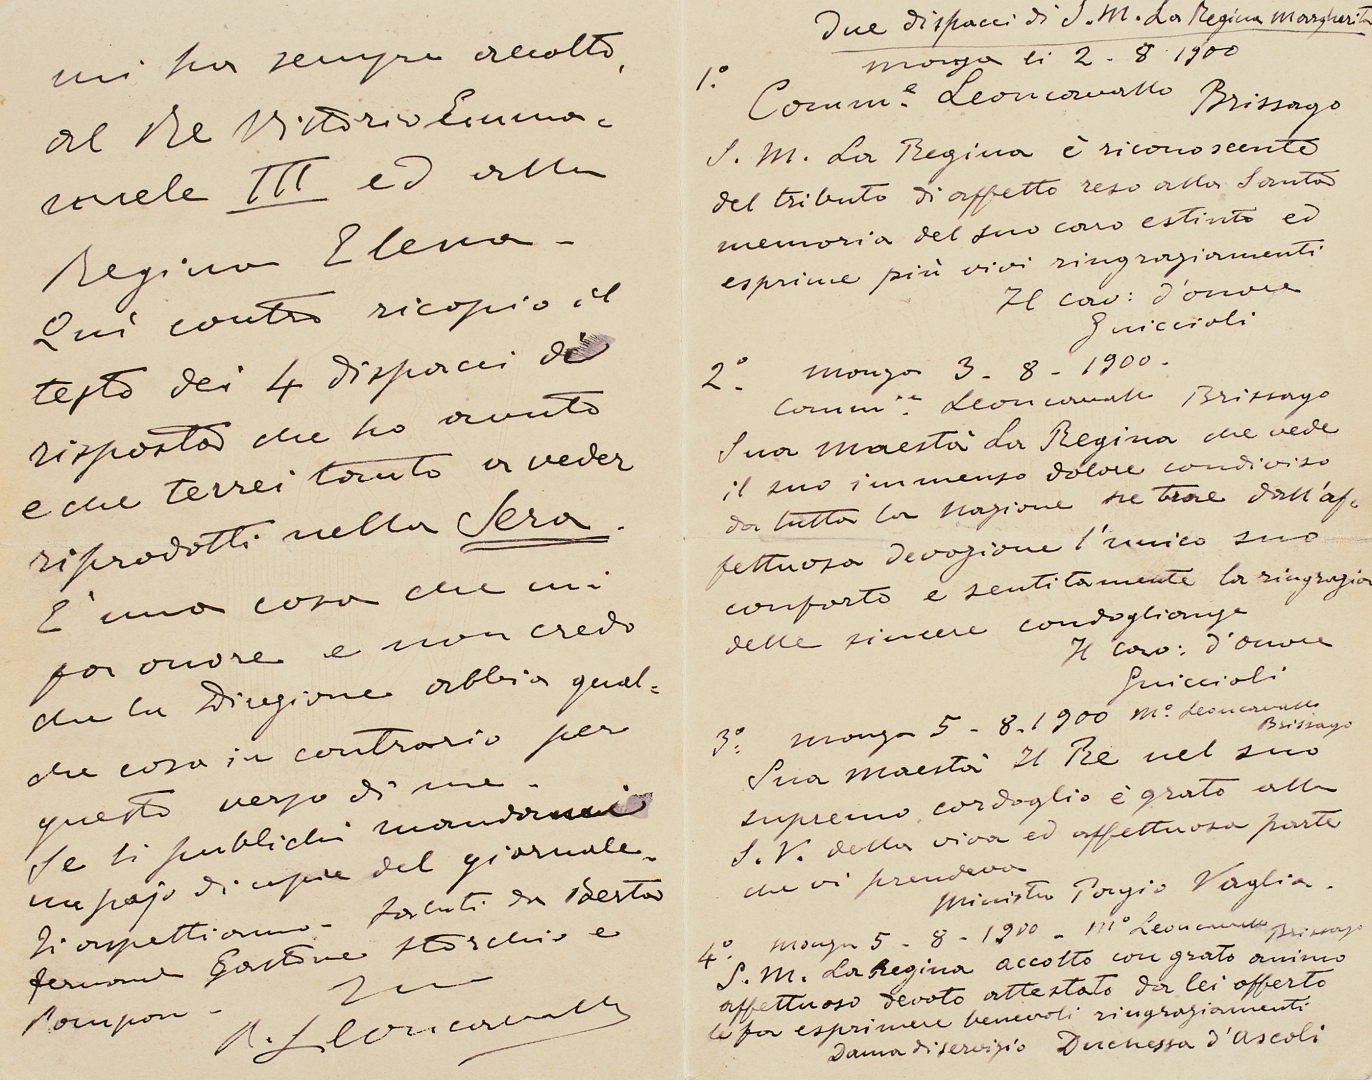 mi ha sempre accolto,
al Re Vittorio Emma=
nuele III ed alla
Regina Elena -
Qui contro ricopio il
testo dei 4 dispacci di
risposta che ho avuto
e che terrei tanto a veder
riprodotti nella Sera.
E' una cosa che mi
fa onore e non credo
che la Direzione abbia qual=
che cosa in contrario per
questo verso di me.
Se li pubblichi mandami
un pajo di copie del giornale.
Ti aspettiamo - Saluti da Berta
Fernand Gastone Storchio e
Pompon -
Tuo
R. Leoncavallo
Due dispacci di S. M. La Regina Margherita
Monza li 2 - 8 1900
1.° Comm.e Leoncavallo Brissago
S. M. La Regina è riconoscente
del tributo di affetto reso alla Santa
memoria del suo caro estinto ed
esprime più vivi ringraziamenti
Il cav: d'onore
Guiccioli
2.° Monza 3 - 8 - 1900 -
Comm.re Leoncavallo Brissago
Sua Maestà La Regina che vede
il suo immenso dolore condiviso
da tutta la nazione trae dall'af=
fettuosa devozione l'unico suo
conforto e sentitamente la ringrazia
delle sincere condoglianze
Il cav: d'onore
Guiccioli
3.° Monza 5 - 8. 1900 M.° Leoncavallo
Brissago
Sua Maestà Il Re nel suo
supremo cordoglio è grato alla
S. V. della viva ed affettuosa parte
che vi prendeva
Ministro Ponzio Vaglia.
4.° Monza 5 - 8 - 1900 - M° Leoncavallo Brissago
S. M. La Regina accolto con grato animo
affettuoso devoto attestato da lei offerto
le fa esprimere benevoli ringraziamenti
Dama di servizio Duchessa d'Ascoli